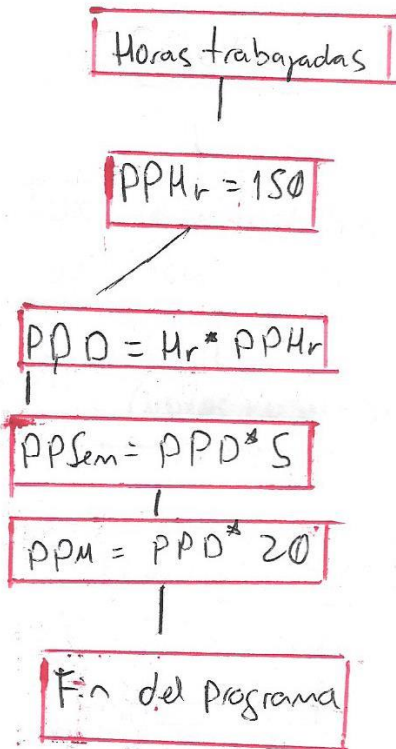 Horas trabajadas
PPHr = 150
PPD = Hr * PPHr
PPSem = PPD * 5
PPM = PPD * 20
Fin del programa